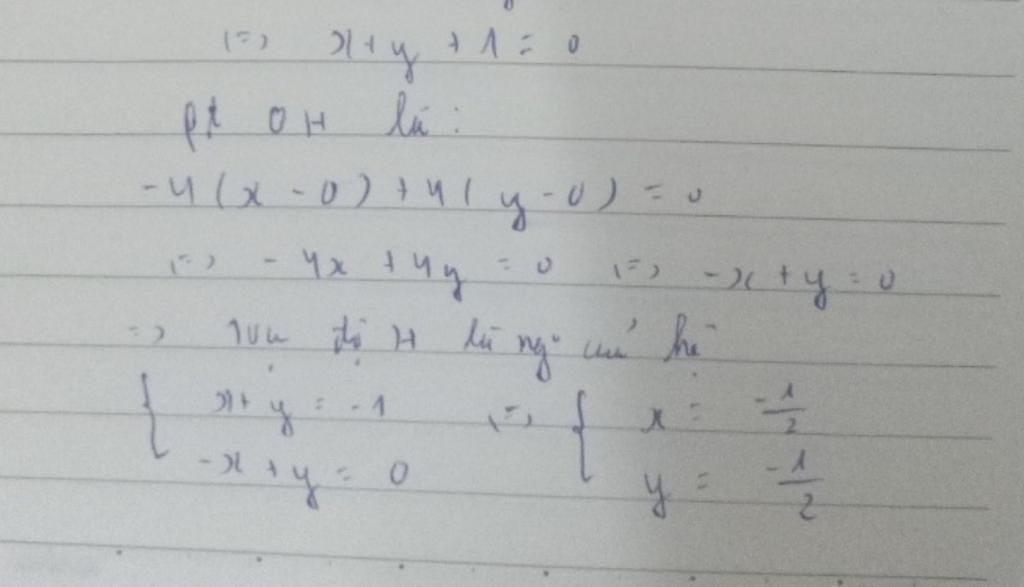 (=) x+y+1=0
pt OH là:
-4(x-0)+4(y-0)=0
(=) -4x+4y=0 (=) -x+y=0
=) toạ độ H là ng° của hệ
{ x+y=-1 (=) { x = -1/2
-x+y=0 y = -1/2